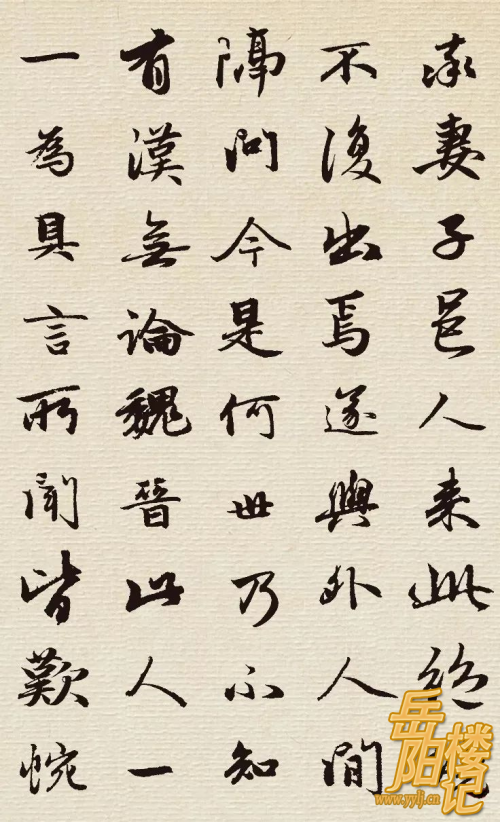 率妻子邑人来此絶
不復出焉遂與外人間
隔問今是何世乃不知
有漢無論魏晉此人一
一為具言所聞皆歎惋
岳阳楼记
www.yylj.cn